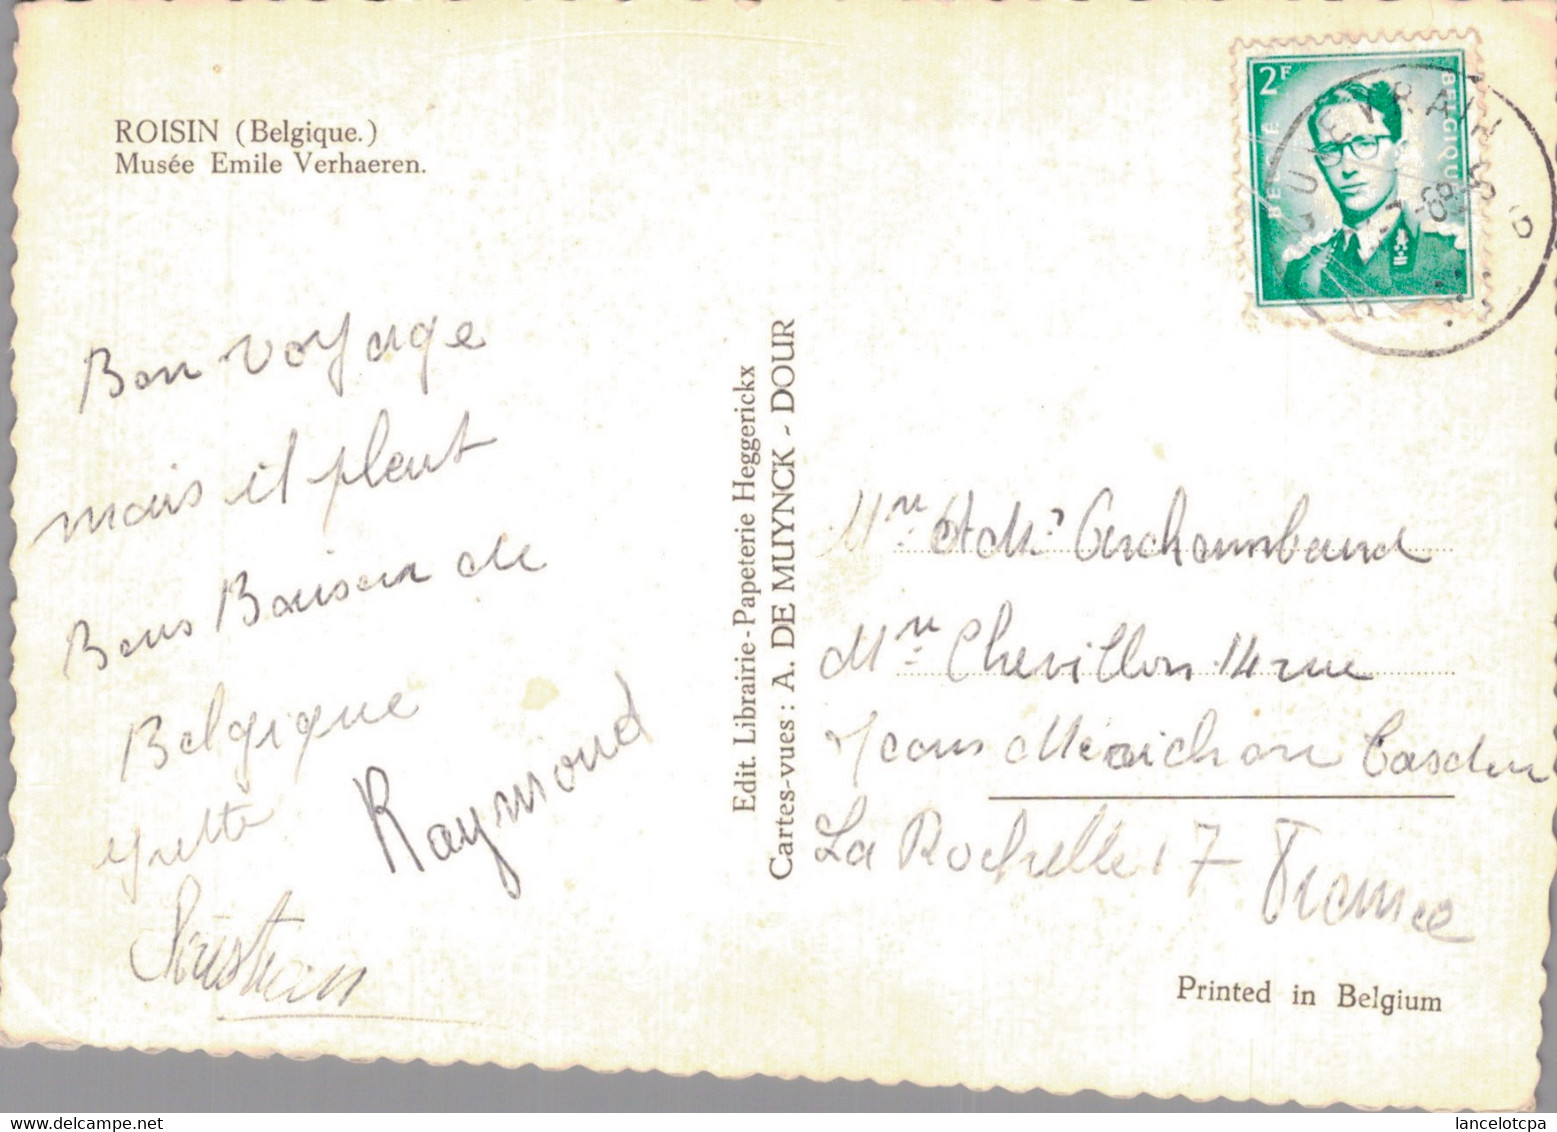 ROISIN (Belgique.)
Musée Emile Verhaeren.
Bon voyage
mais il pleut
Bons Baisers de
Belgique
Yvette
Raymond
Christian
Edit. Librairie-Papeterie Heggerickx
Cartes-vues : A. DE MUYNCK - DOUR
2F
BELGIË
BELGIQUE
QUIEVRAIN
Mr et Me Archambaud
Mr Chevillon 14 rue
Jean
La Rochelle 17 France
Printed in Belgium
lancelotcpa